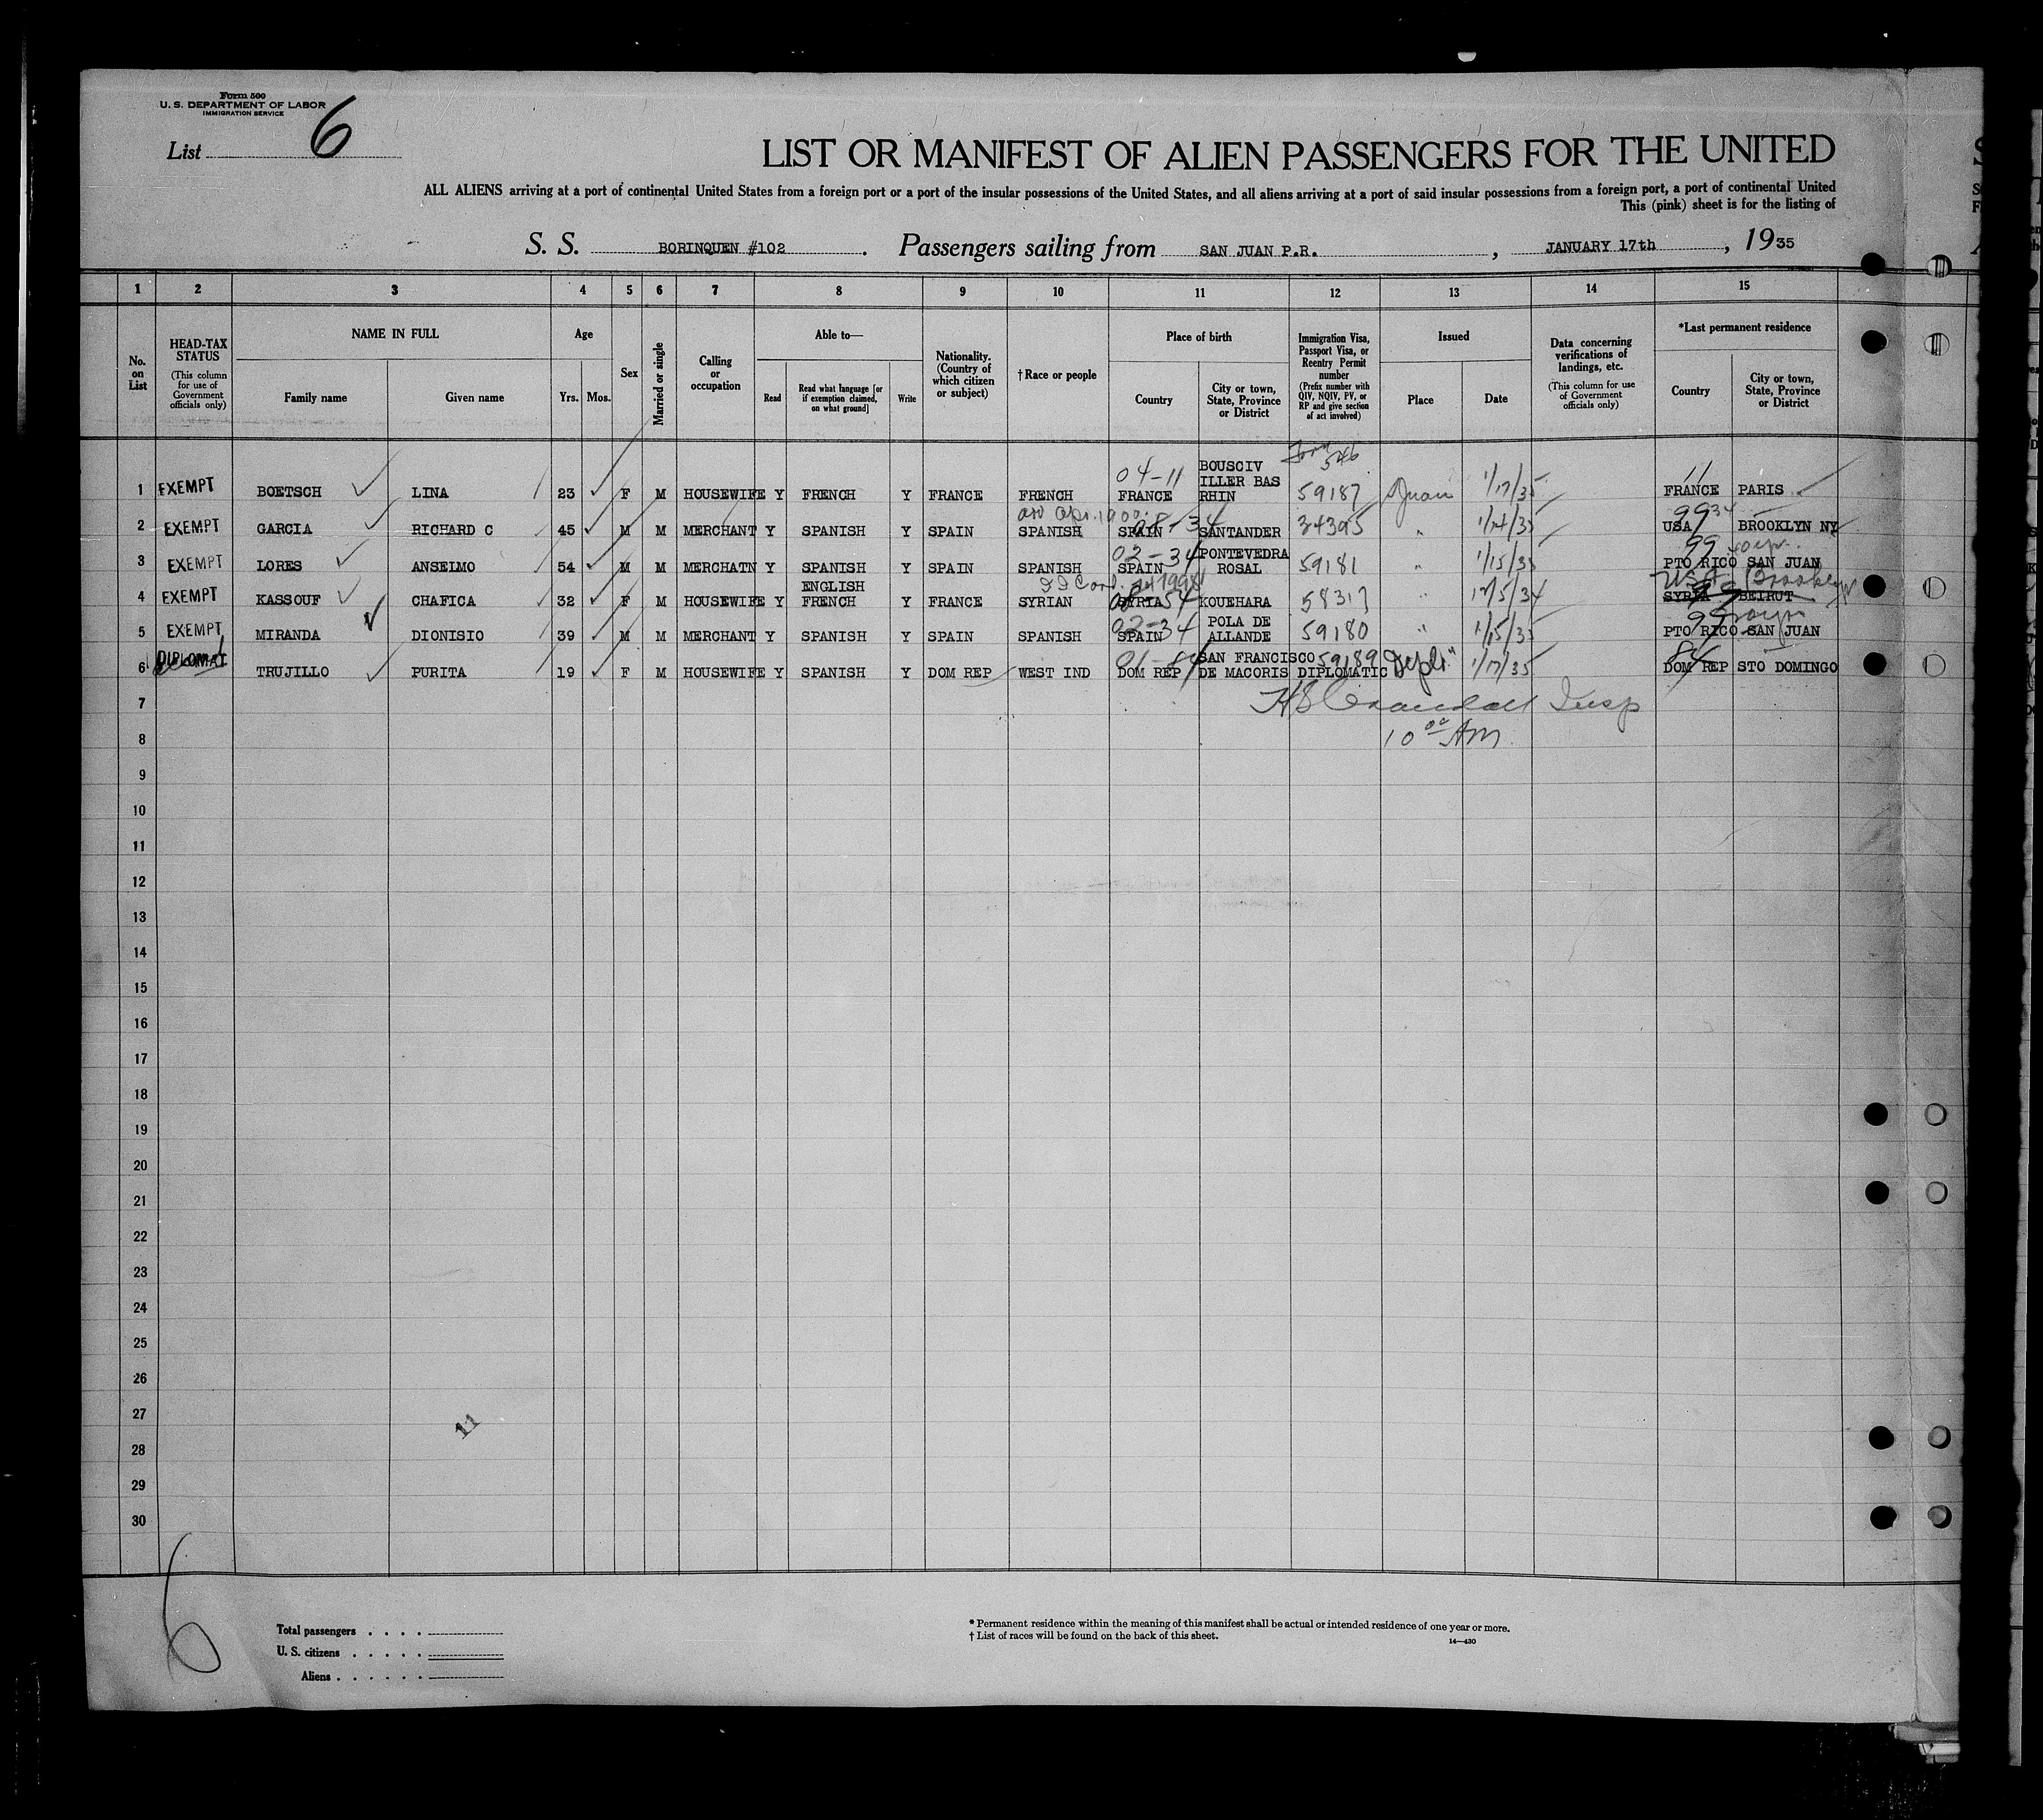 Form 500
U. S. DEPARTMENT OF LABOR
IMMIGRATION SERVICE
List 6
LIST OR MANIFEST OF ALIEN PASSENGERS FOR THE UNITED
ALL ALIENS arriving at a port of continental United States from a foreign port or a port of the insular possessions of the United States, and all aliens arriving at a port of said insular possessions from a foreign port, a port of continental United
This (pink) sheet is for the listing of
S. S. BORINQUEN #102. Passengers sailing from SAN JUAN P.R., JANUARY 17th, 1935
1 2 3 4 5 6 7 8 9 10 11 12 13 14 15
No. on List
HEAD-TAX STATUS (This column for use of Government officials only)
NAME IN FULL
Family name Given name
Age
Yrs. Mos.
Sex
Married or single
Calling or occupation
Able to—
Read Read what language [or if exemption claimed, on what ground] Write
Nationality. (Country of which citizen or subject)
†Race or people
Place of birth
Country City or town, State, Province or District
Immigration Visa, Passport Visa, or Reentry Permit number (Prefix number with QIV, NQIV, PV, or RP and give section of act involved)
Issued
Place Date
Data concerning verifications of landings, etc. (This column for use of Government officials only)
*Last permanent residence
Country City or town, State, Province or District
Form 546
1 EXEMPT BOETSCH LINA 23 F M HOUSEWIFE Y FRENCH Y FRANCE FRENCH 04-11 FRANCE BOUSCIV ILLER BAS RHIN 59187 SJuan 1/17/35 11 FRANCE PARIS
2 EXEMPT GARCIA RICHARD C 45 M M MERCHANT Y SPANISH Y SPAIN SPANISH SPAIN SANTANDER 34395 " 1/14/35 99 34 USA BROOKLYN NY
3 EXEMPT LORES ANSELMO 54 M M MERCHATN Y SPANISH Y SPAIN SPANISH 02-34 SPAIN PONTEVEDRA ROSAL 59181 " 1/15/35 99 PTO RICO SAN JUAN
4 EXEMPT KASSOUF CHAFICA 32 F M HOUSEWIFE Y ENGLISH FRENCH Y FRANCE SYRIAN SYRIA KOUEHARA 58317 12/5/34 USA Brooklyn NY SYRIA BEIRUT
5 EXEMPT MIRANDA DIONISIO 39 M M MERCHANT Y SPANISH Y SPAIN SPANISH 02-34 SPAIN POLA DE ALLANDE 59180 " 1/15/35 99 PTO RICO SAN JUAN
6 DIPLOMAT TRUJILLO PURITA 19 F M HOUSEWIFE Y SPANISH Y DOM REP WEST IND 01-84 DOM REP SAN FRANCISCO DE MACORIS 59189 DIPLOMATIC 1/17/35 84 DOM REP STO DOMINGO
7 HS Crandall Insp
8 10 00 AM
9
10
11
12
13
14
15
16
17
18
19
20
21
22
23
24
25
26
27
11
28
29
30
6
Total passengers
U. S. citizens
Aliens
* Permanent residence within the meaning of this manifest shall be actual or intended residence of one year or more.
† List of races will be found on the back of this sheet.
14—430